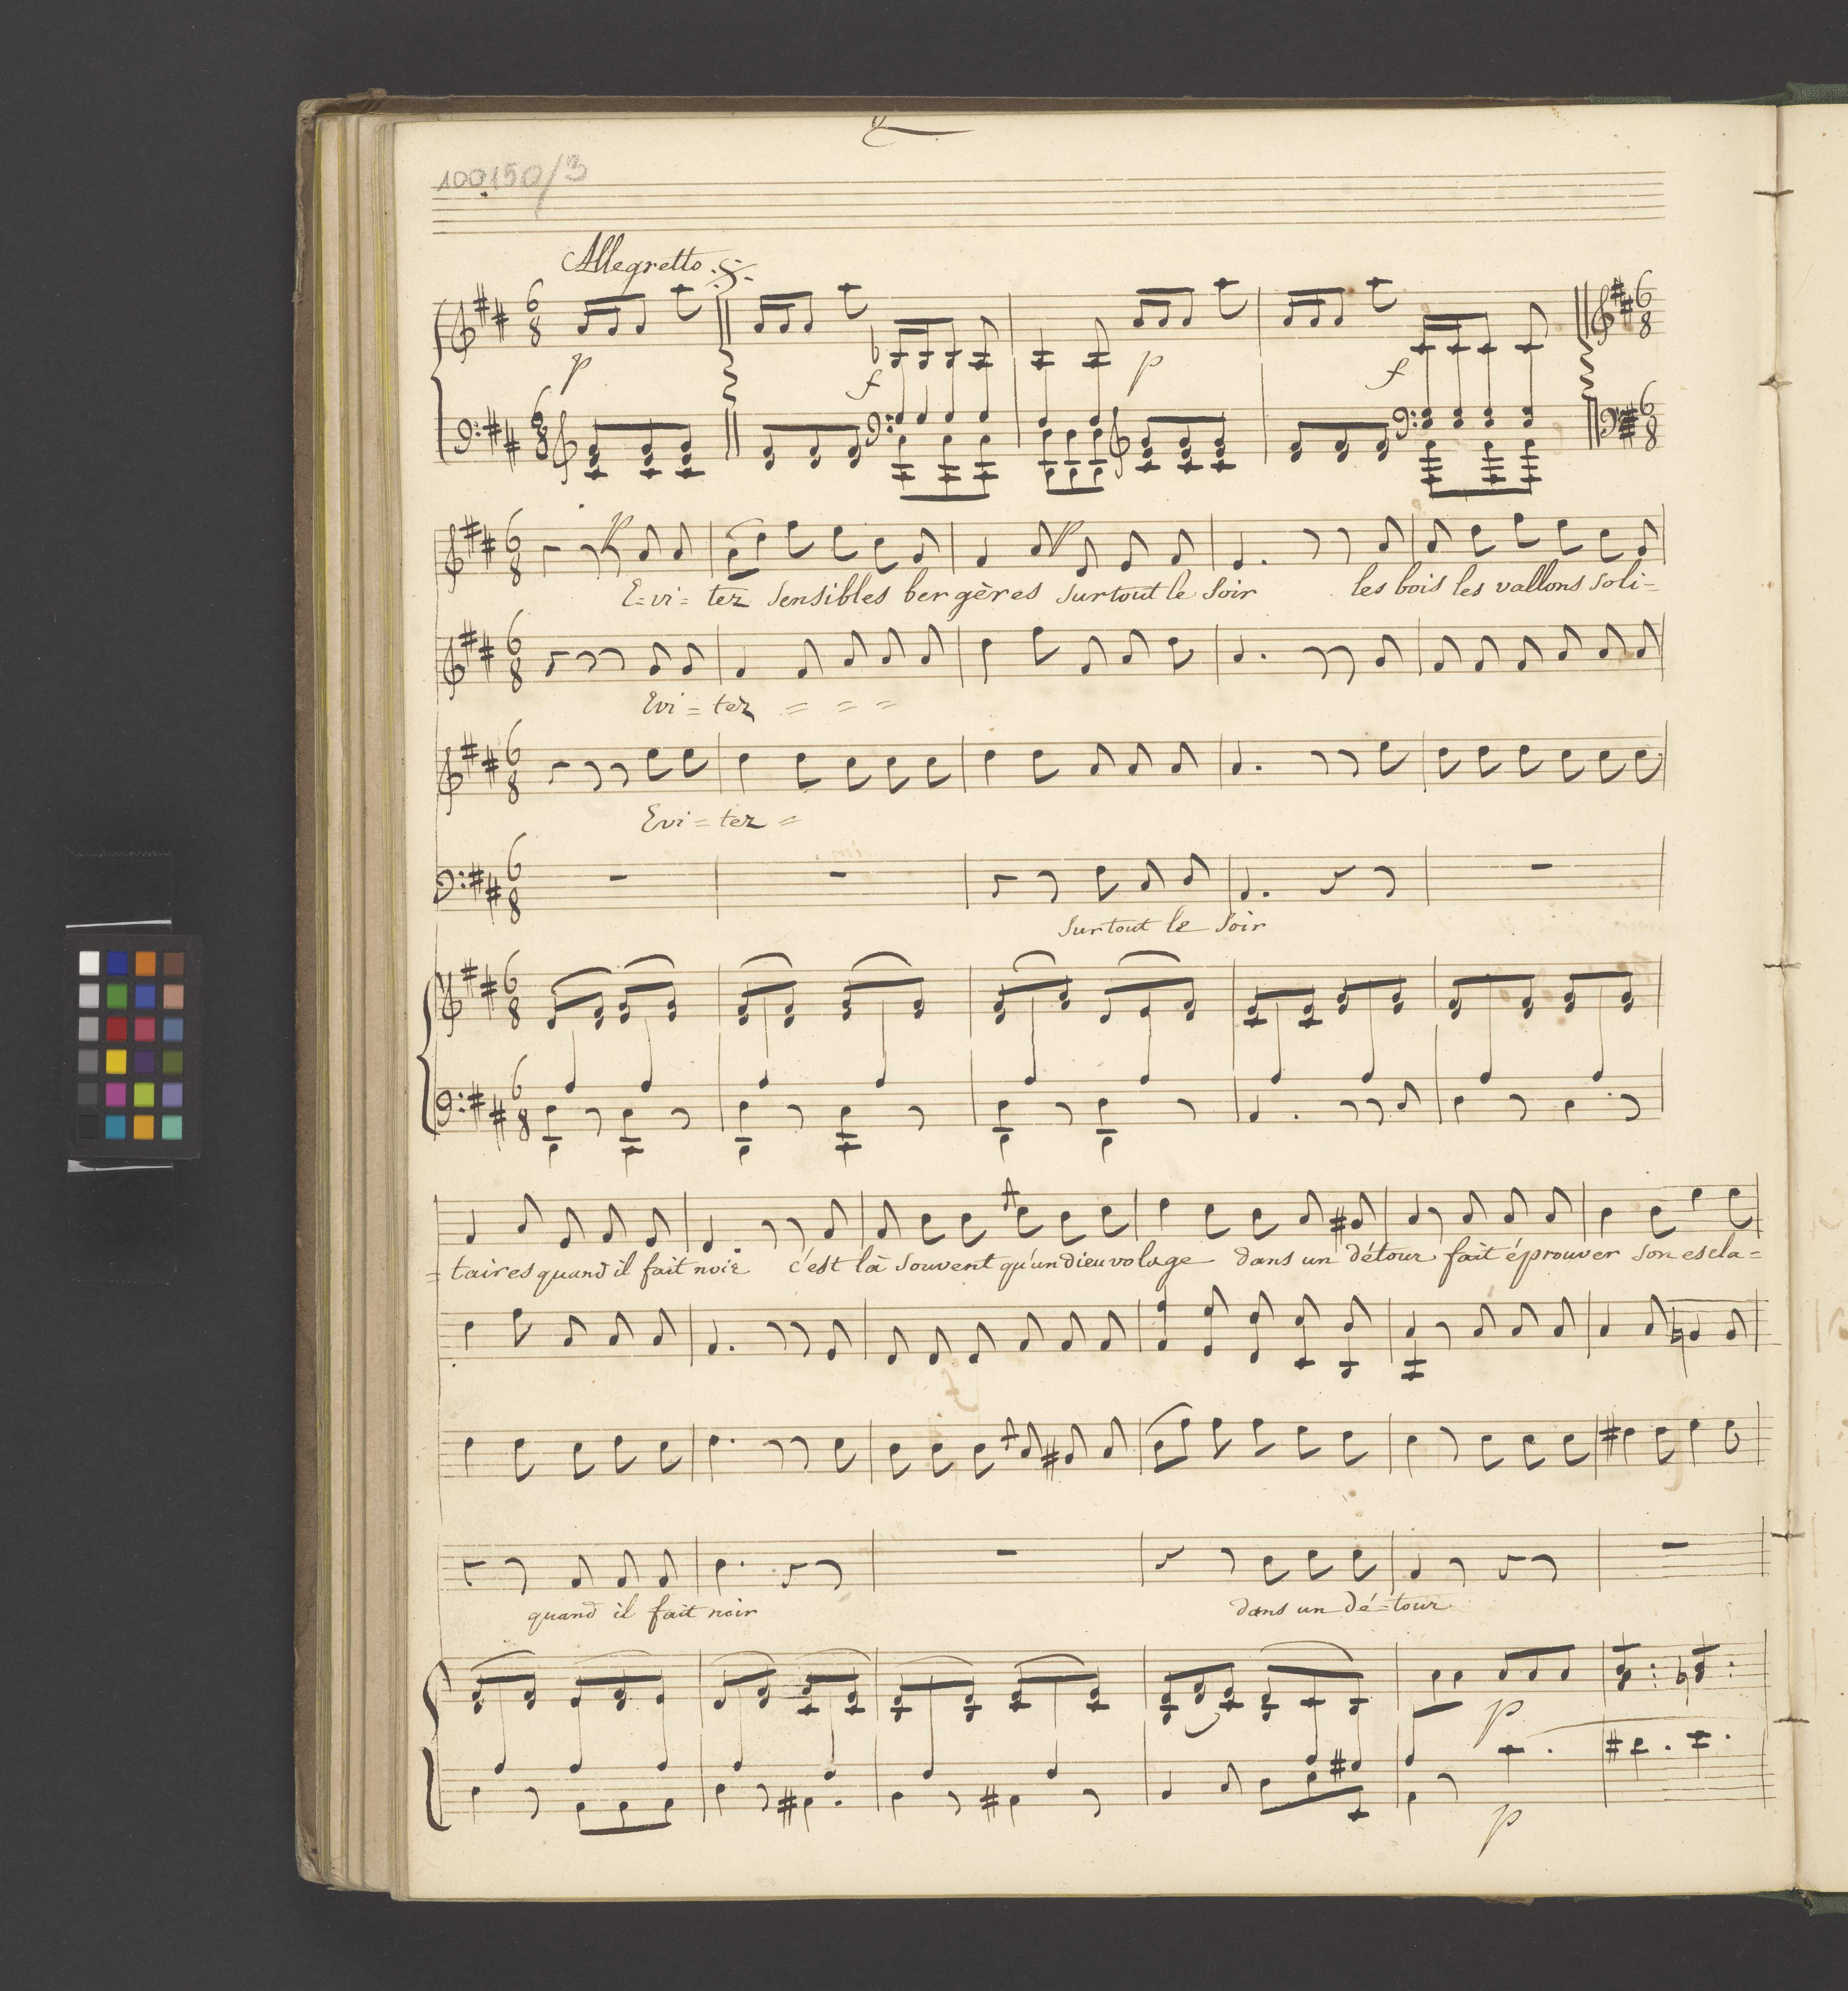 100150/3
Allegretto
p f p f
p p
E=vi= tez sensibles bergères surtout le soir les bois les vallons soli=
Evi = tez = = =
Evi = tez =
surtout le soir
=taires quand il fait noir c'est là souvent qu'un dieu volage dans un détour fait éprouver son escla=
quand il fait noir dans un dé=tour
p
p